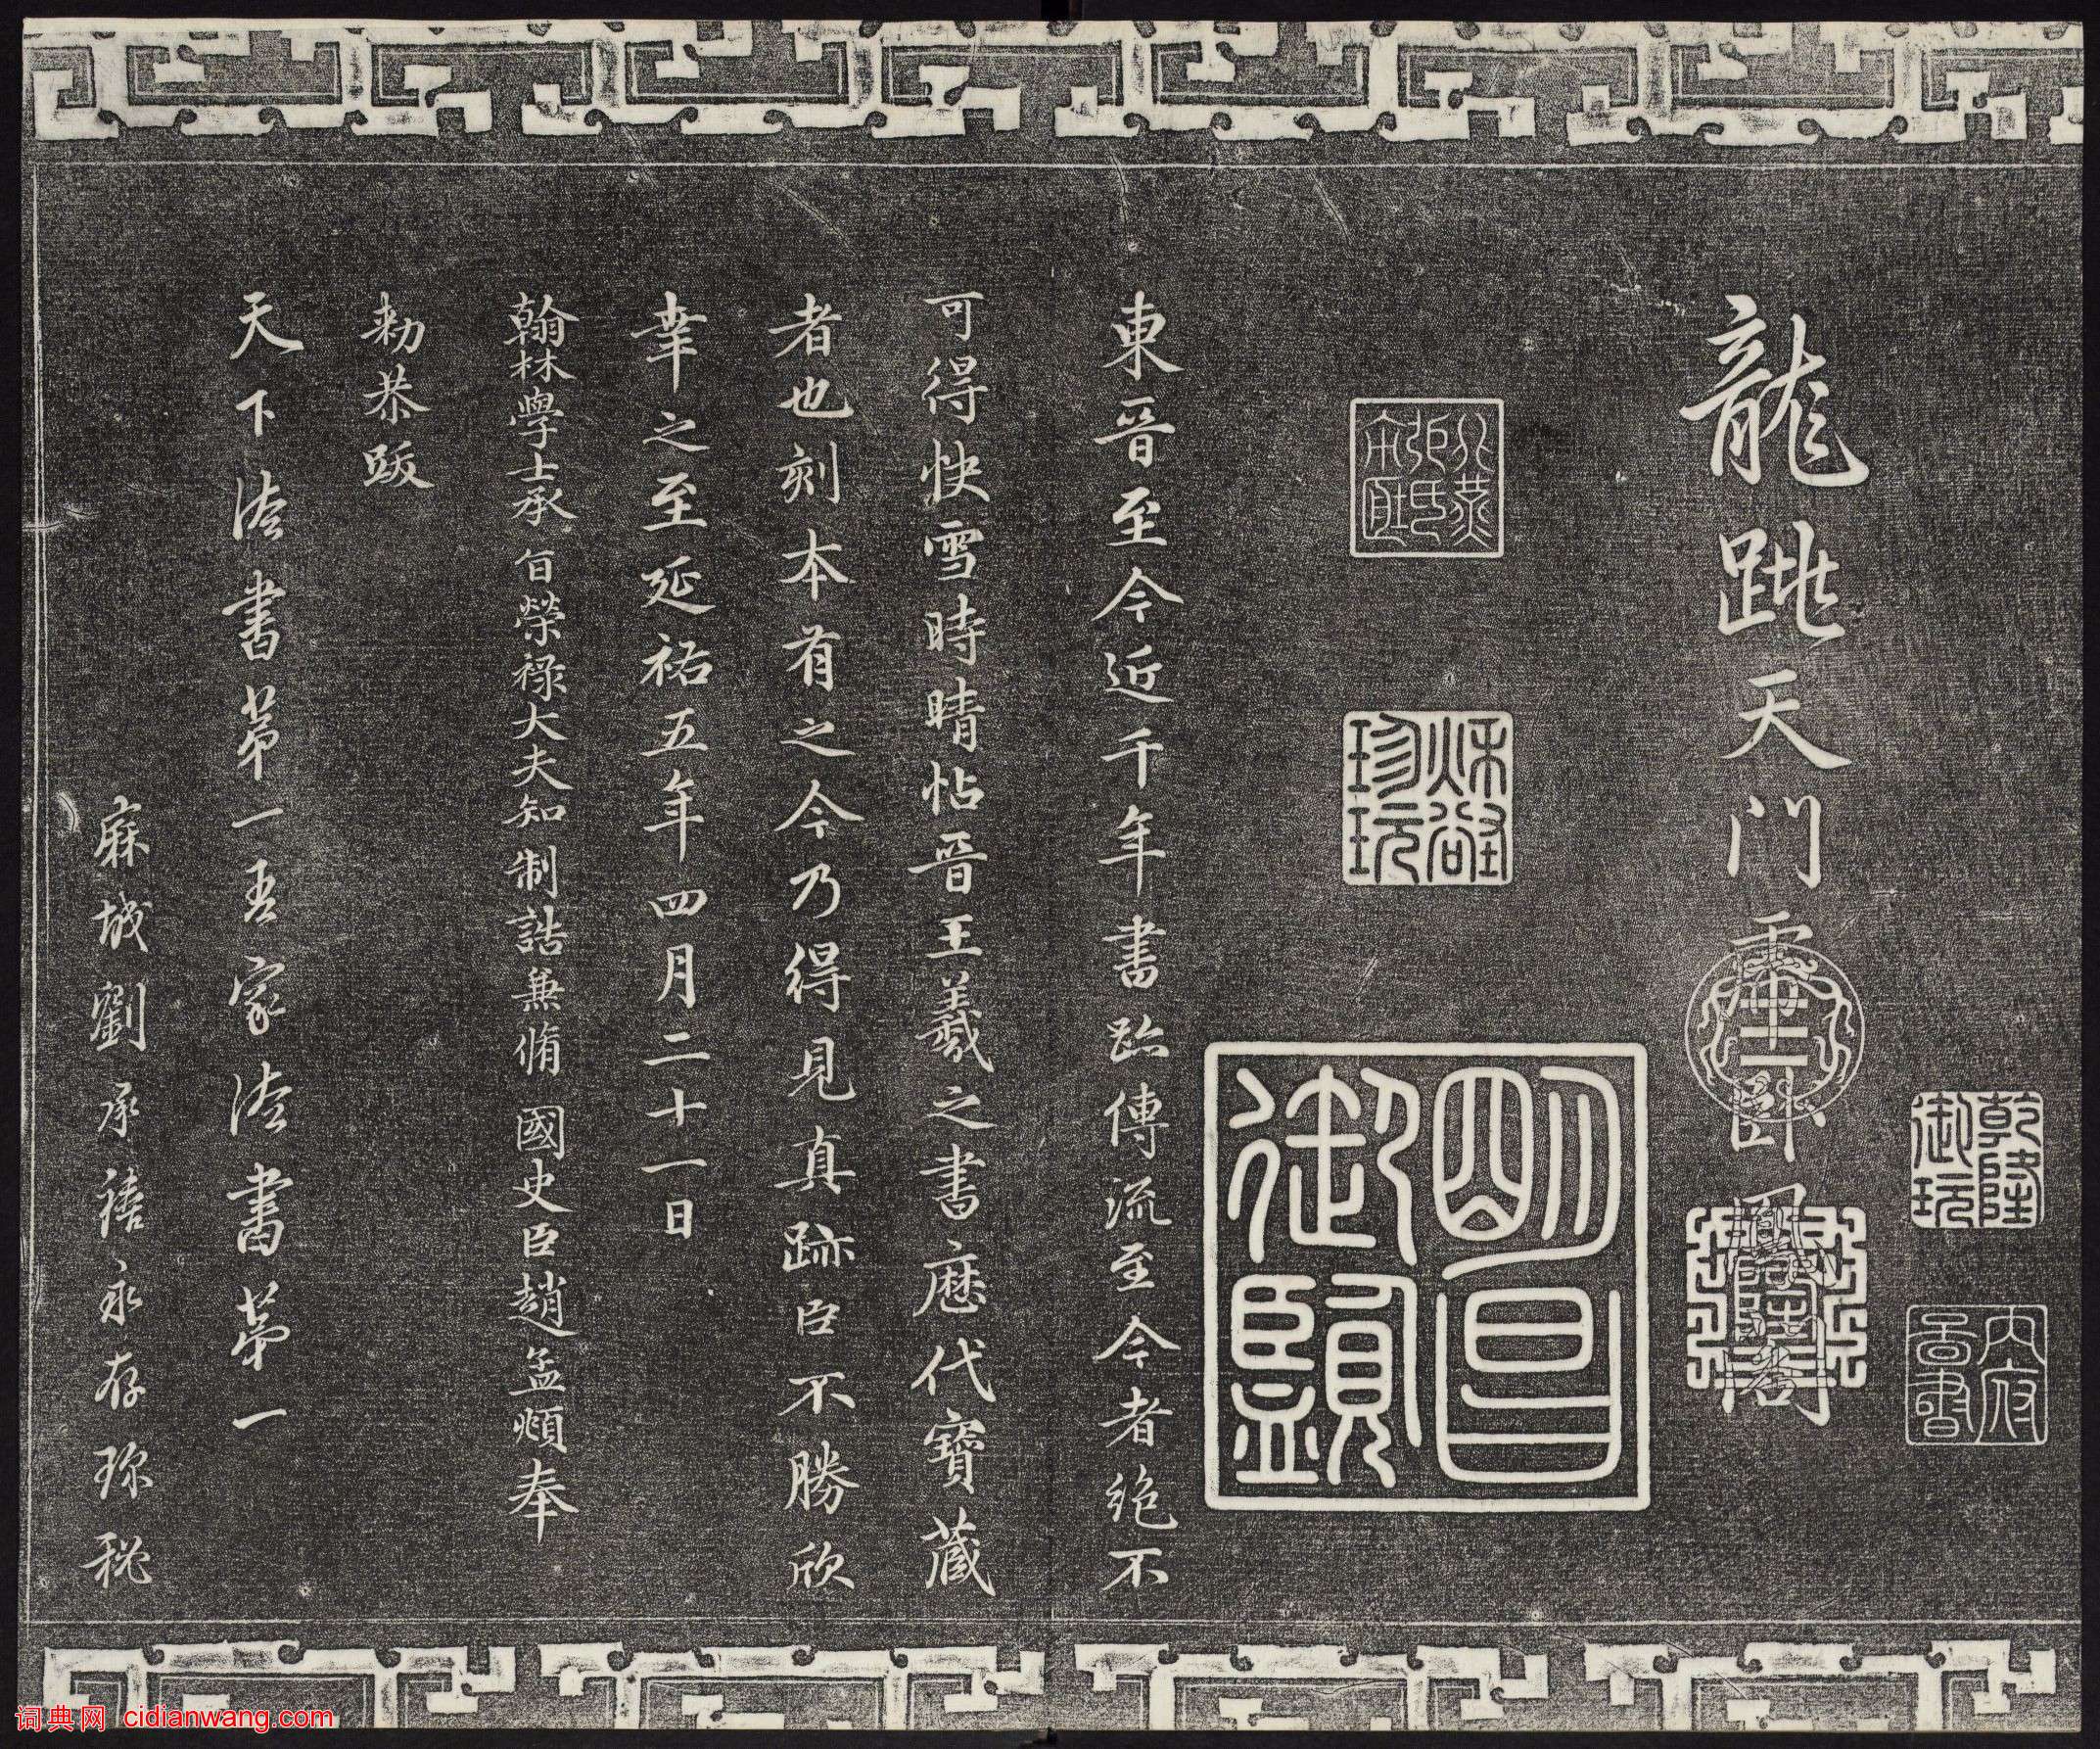 龍跳天門虎卧鳳閣
乾隆御玩
內府
明昌御覽
珍玩
東晉至今近千年書跡傳流至今者絶不
可得快雪時晴帖晉王羲之書歷代寶藏
者也刻本有之今乃得見真跡臣不勝欣
幸之至延祐五年四月二十一日
翰林學士承旨榮祿大夫知制誥兼脩國史臣趙孟頫奉
勅恭跋
天下法書第一吾家法書第一
麻城劉承禧永存珎秘
词典网 cidianwang.com